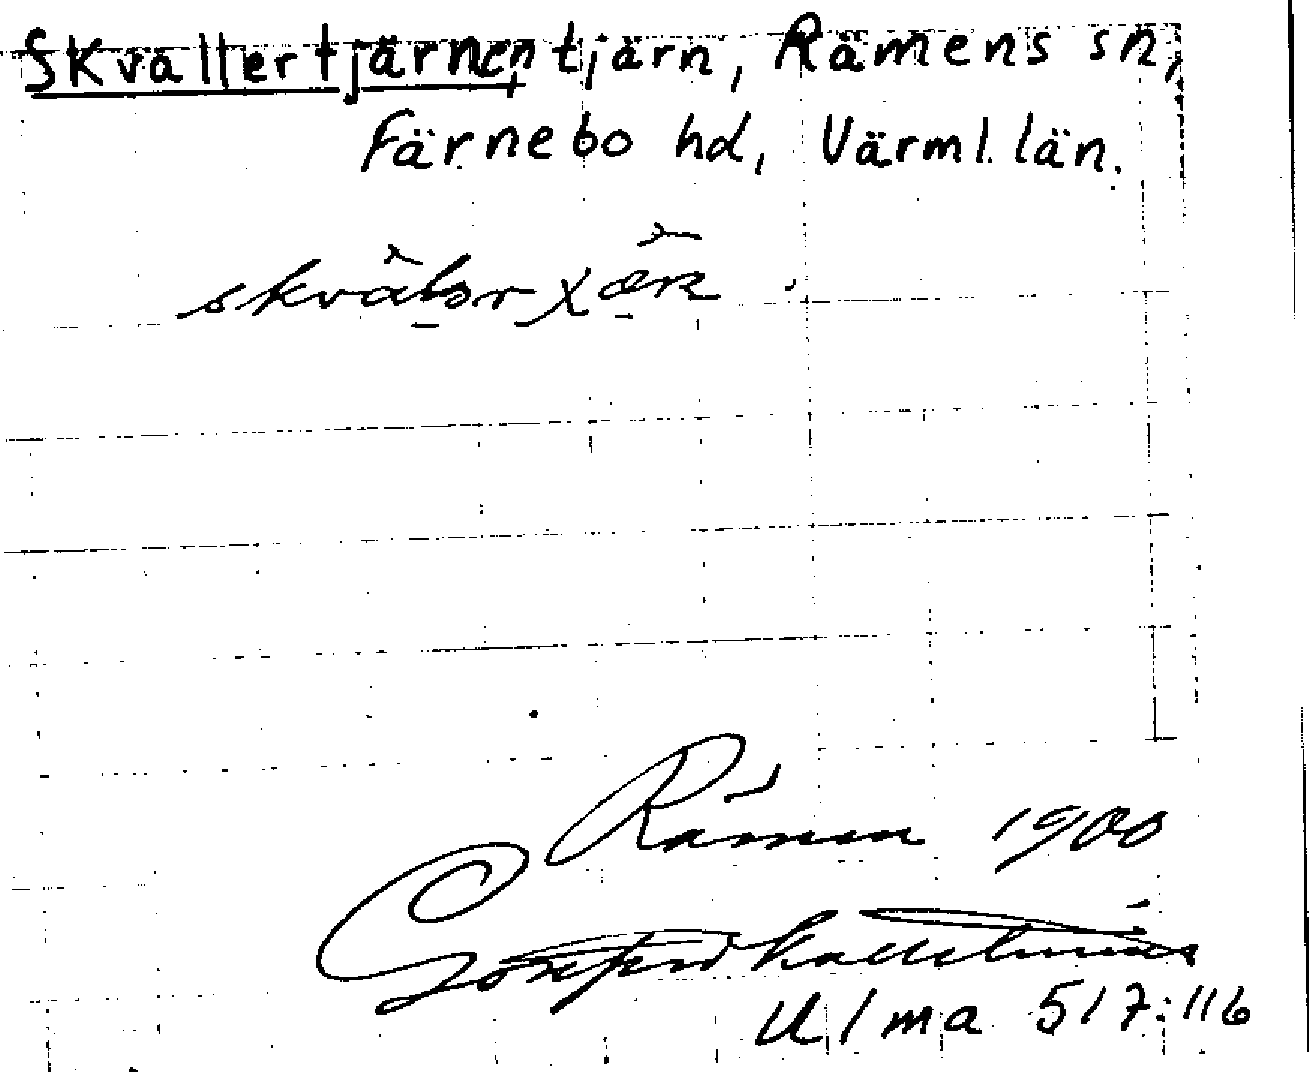 Skvallertjärnen, tjärn, Rämens sn,
Färnebo hd, Värml. län.
Rämen 1900
Gottfrid Kallstenius
Ulma 517:116